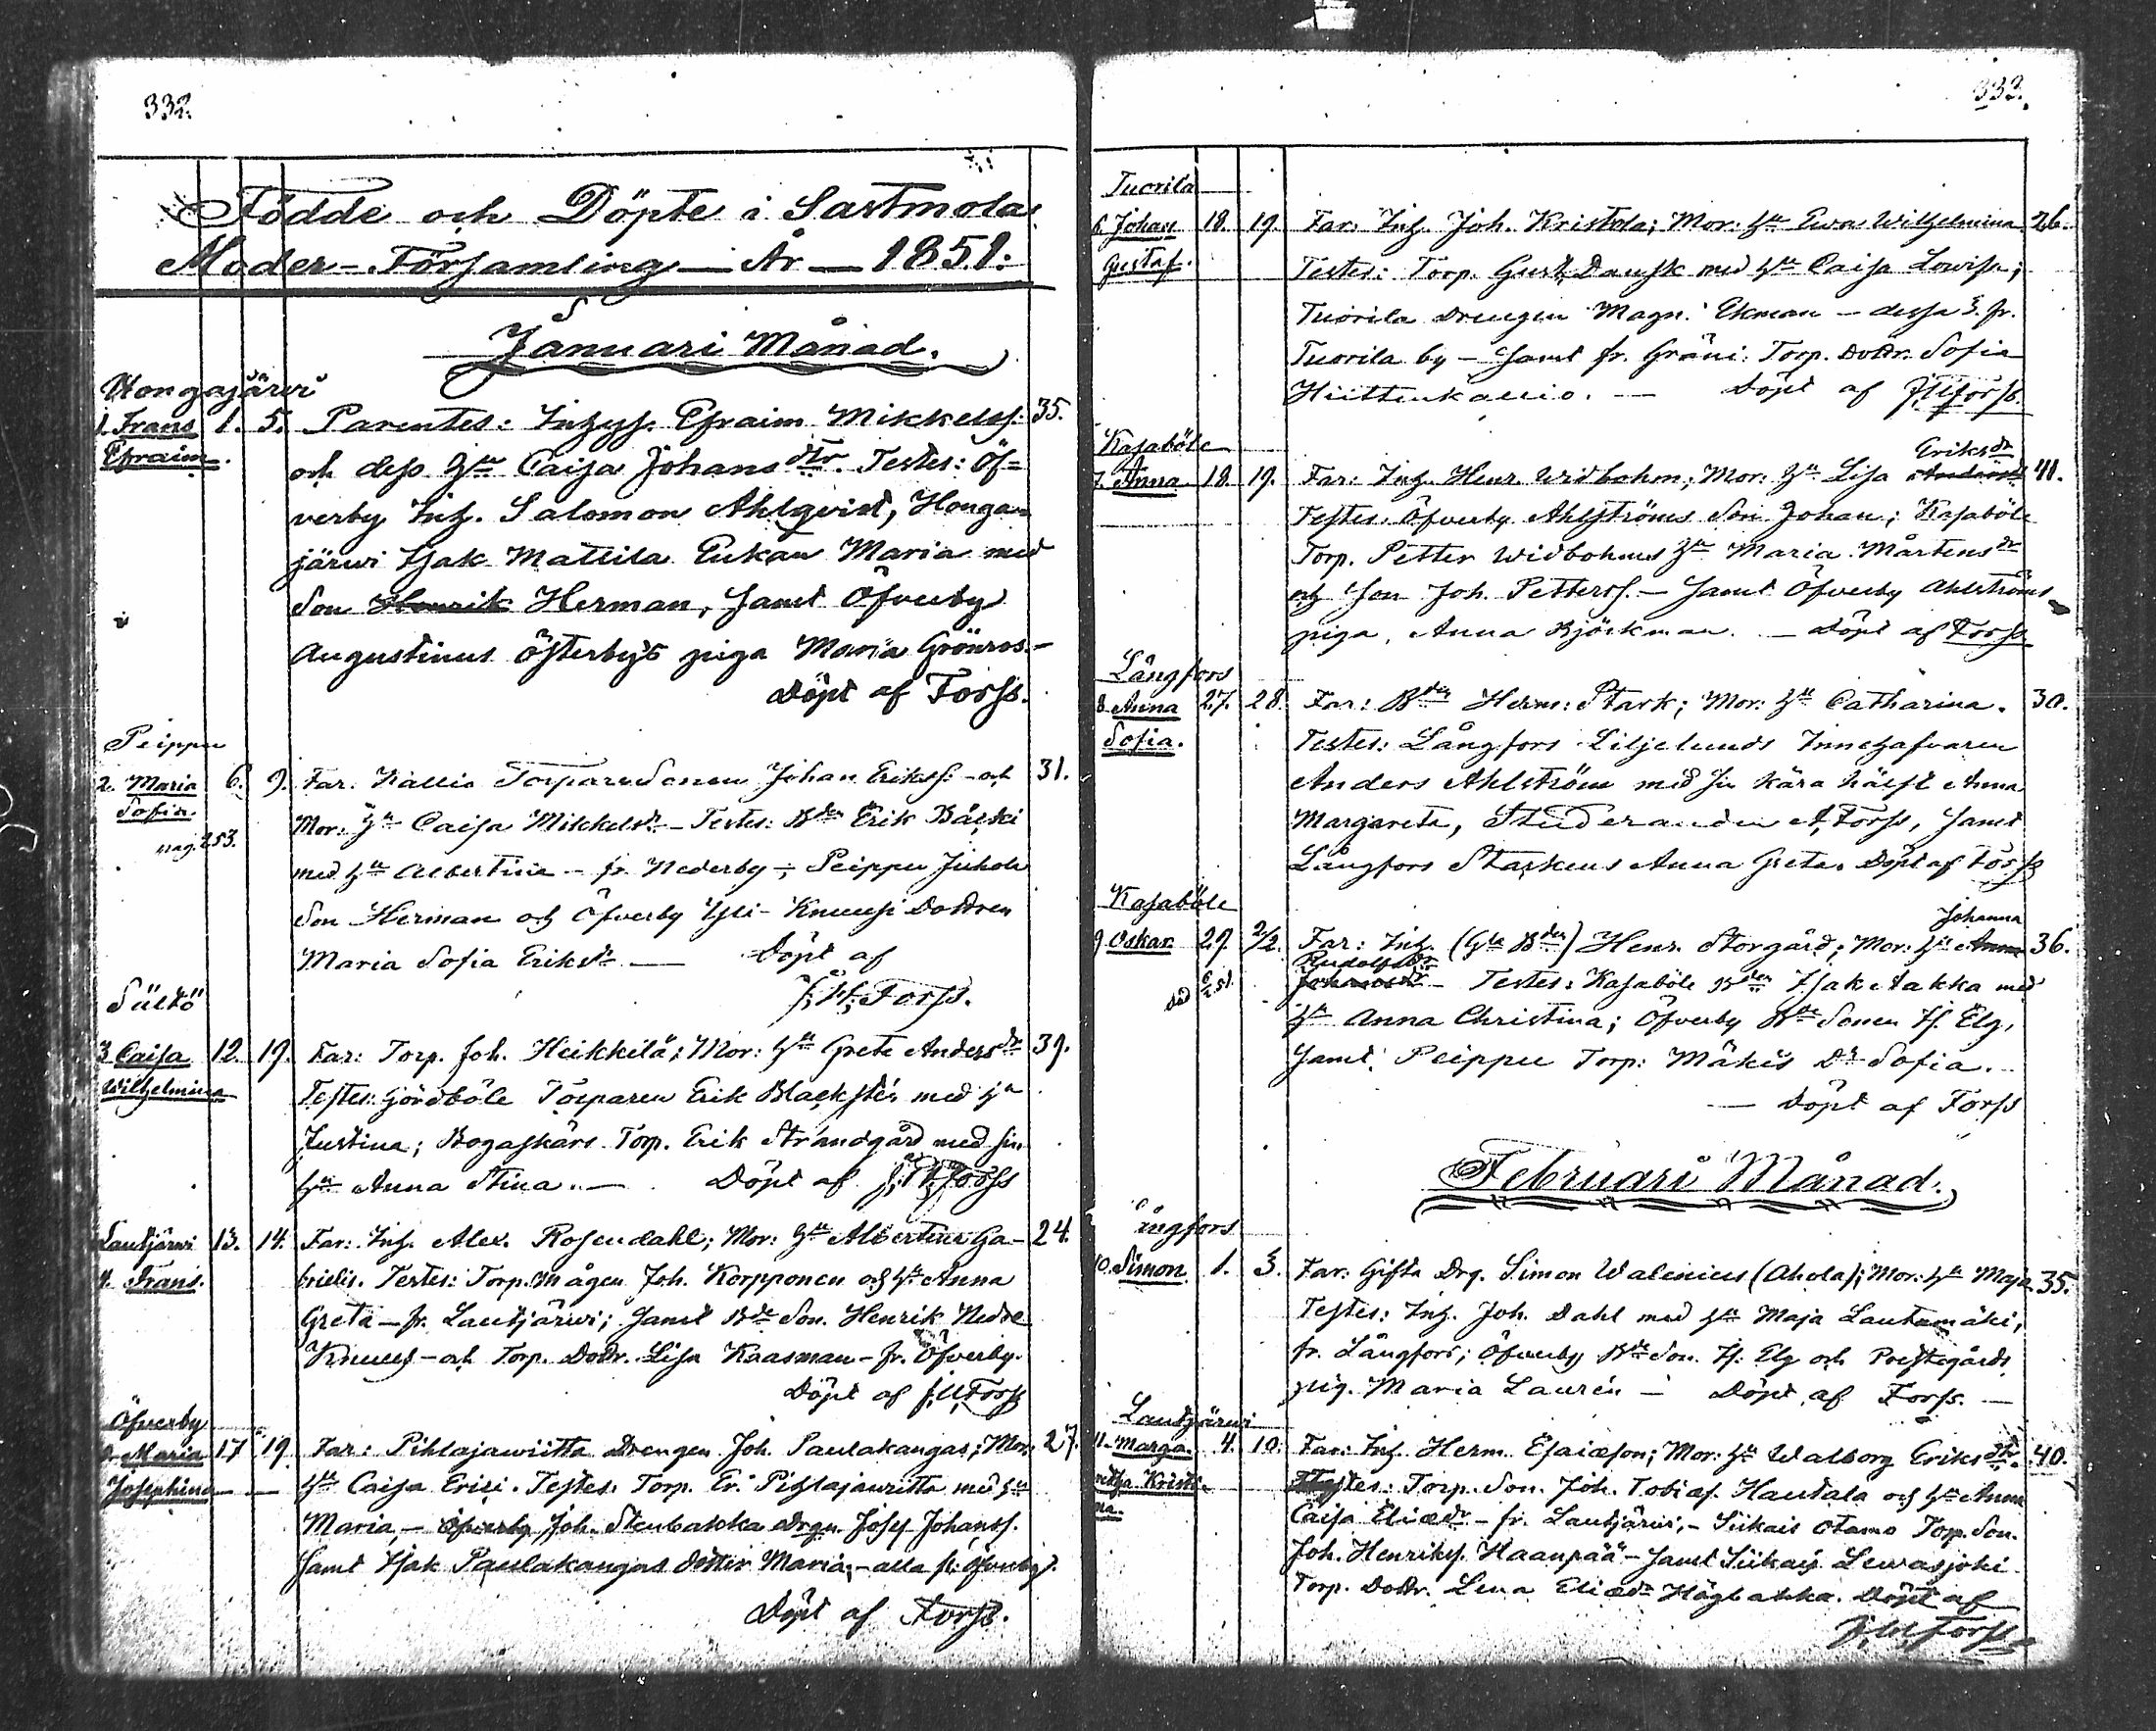 332.
Födde och Döpte i Sastmola
Moder-Församling — År — 1851.
Januari Månad.
Hongajärwi
1. Frans 1. 5. Parentes: Inhys. Efraim Mikkelss. 35.
Efraim. och dess Hu Caisa Johansdtr. Testes: Öf=
verby Inh. Salomon Ahlqvist, Honga-
järwi Isak Mattila Enkan Maria med
Son Henrik Herman, samt Öfverby
Augustinus Österby's piga Maria Grönros.-
Döpt af Forss.
Peippu
2. Maria 6. 9. Far. Kallio Torparesonen Johan Erikss. - och 31.
Sofia. Mor: Hu Caisa Mikkelsdr - Testes: Bden Erik Bäcki
pag. 253. med Hu Albertina - fr. Nederby -; Peippu Juhola
Son Herman och Öfverby Yli-Knuusi Dottren
Maria Sofia Eriksdr — Döpt af
Forss.
Sältö
3. Caisa 12. 19. Far: Torp. Joh. Heikkilä; Mor: Hu Greta Andersdr 39.
Wilhelmina Testes: Gördböle Torparen Erik Blackstén med Hu
Justina; Bogaskärs Torp. Erik Strandgård med sin
Hu Anna Stina. — Döpt af Forss
Lautjärwi 13. 14. Far: Inh. Alex. Rosendahl; Mor: Hu Albertina Ga- 24.
4. Frans. brielis. Testes: Torp. Mågen Joh. Korpponen och Hu Anna
Greta - fr. Lautjärwi; samt Bde Son. Henrik Nedre
Knuus - och Torp. Dottr. Lisa Kaasman - fr. Öfverby.
Döpt af Forss
Öfverby
5. Maria 17 19 Far: Pihlajawiitta Drengen Joh. Paulakangas; Mor: 27.
Josephina Hu Caisa Erici. Testes: Torp. Er. Pihlajawiitta med Hu
Maria, - Öfverby Joh. Stenbakka Drgn Josef Johanss.
samt Isak Paulakangas dotter Maria, - alla fr. Öfverby.
Döpt af Forss.
333.
Tuorila
6. Johan 18. 19. Far: Inh. Joh. Kristola; Mor: Hu Ewa Wilhelmina 26.
Gustaf. Testes: Torp. Gust. Dansk med Hu Caisa Lowisa;
Tuorila Drengen Magn. Ekman - dessa 3 fr.
Tuorila by - samt fr. Gräni: Torp. Dottr. Sofia
Hiittenkallio. — Döpt af Forss.
Kasaböle Eriksdr
7. Anna 18. 19. Far: Inh. Henr. Widbohm; Mor: Hu Lisa Andersdr 41.
Testes: Öfverby Ahlströms Son Johan; Kasaböle
Torp. Petter Widbohms Hu Maria Mårtensdr
och Son Joh. Petterss. - samt Öfverby Ahlströms
piga, Anna Björkman. — Döpt af Forss
Långfors
8. Anna 27. 28. Far: Bden Herm: Stark; Mor: Hu Catharina. 30.
Sofia. Testes: Långfors Liljelunds Innehafvaren
Anders Ahlström med sin kära hälft Anna
Margareta, Studeranden A. Forss, samt
Långfors Starkens Anna Greta. Döpt af Forss
Kasaböle Johanna
9. Oskar 29. 2/2. Far: Inh. (Gla Bden) Henr. Storgård; Mor: Hu Anna 36.
Rudolfsdr
död 6/2 51. Johansdr - Testes: Kasaböle Bden Isak Aakka med
Hu Anna Christina; Öfverby Bde Sonen Is. Elg,
samt Peippu Torp: Mäkis Dr Sofia.
— Döpt af Forss
Februari Månad.
ångfors
10. Simon 1. 3. Far: Gifta Drg. Simon Walenius (Ahola); Mor: Hu Maja 35.
Testes: Inh. Joh. Dahl med Hu Maja Lautamäki,
fr. Långfors; Öfverby Bde Son. Is. Elg och Prestegårds
pig. Maria Laurén — Döpt af Forss. —
Lautjärwi
11. Marga- 4. 10. Far: Inh. Herm. Esaiæson; Mor: Hu Walborg Eriksdtr. 40.
retha Kristi- Testes: Torp. Son. Joh. Tobias. Hautala och Hu Anna
na. Caisa Eliædr - fr. Lautjärwi, - Siikais Otamo Torp. Son.
Joh. Henrikss. Haanpää - samt Siikais. Lewasjoki
Torp. Dottr. Lena Eliædr Högbakka. Döpt af
Forss